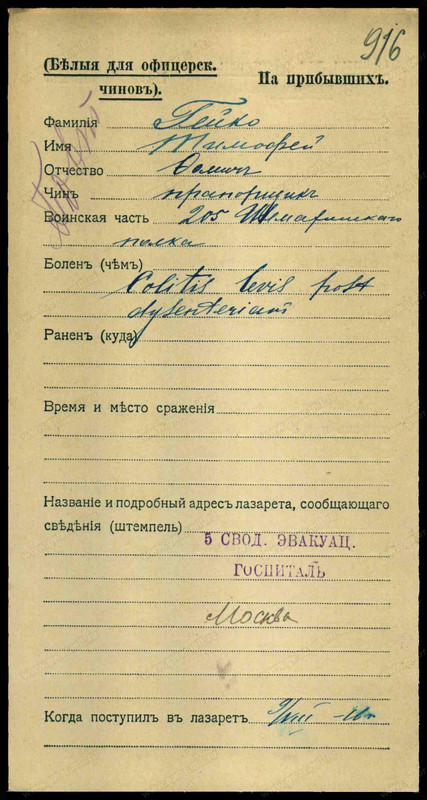 916
(Бѣлыя для офицерск.
чиновъ).
На прибывшихъ.
Фамилія Гейко
Имя Тимофей
Отчество Фомичъ
Чинъ прапорщикъ
Воинская часть 205 Шемаринскаго
полка
Боленъ (чѣмъ)
Colitis levis post
dysenteriam
Раненъ (куда)
Время и мѣсто сраженія
Названіе и подробный адресъ лазарета, сообщающаго
свѣдѣнія (штемпель)
5 СВОД. ЭВАКУАЦ.
ГОСПИТАЛЬ
Москва
Когда поступилъ въ лазаретъ